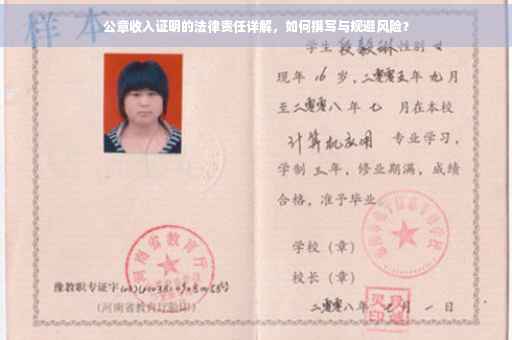 公章收入证明的法律责任详解，如何撰写与规避风险？
样本
学生段毅琳性别女
现年16岁，二零零五年九月
至二零零八年七月在本校
计算机应用 专业学习，
学制三年，修业期满，成绩
合格，准予毕业。
学校（章）
校长（章）
二零零八年七月一日
河南省教育厅
豫教职专证字
（河南省教育厅验印）